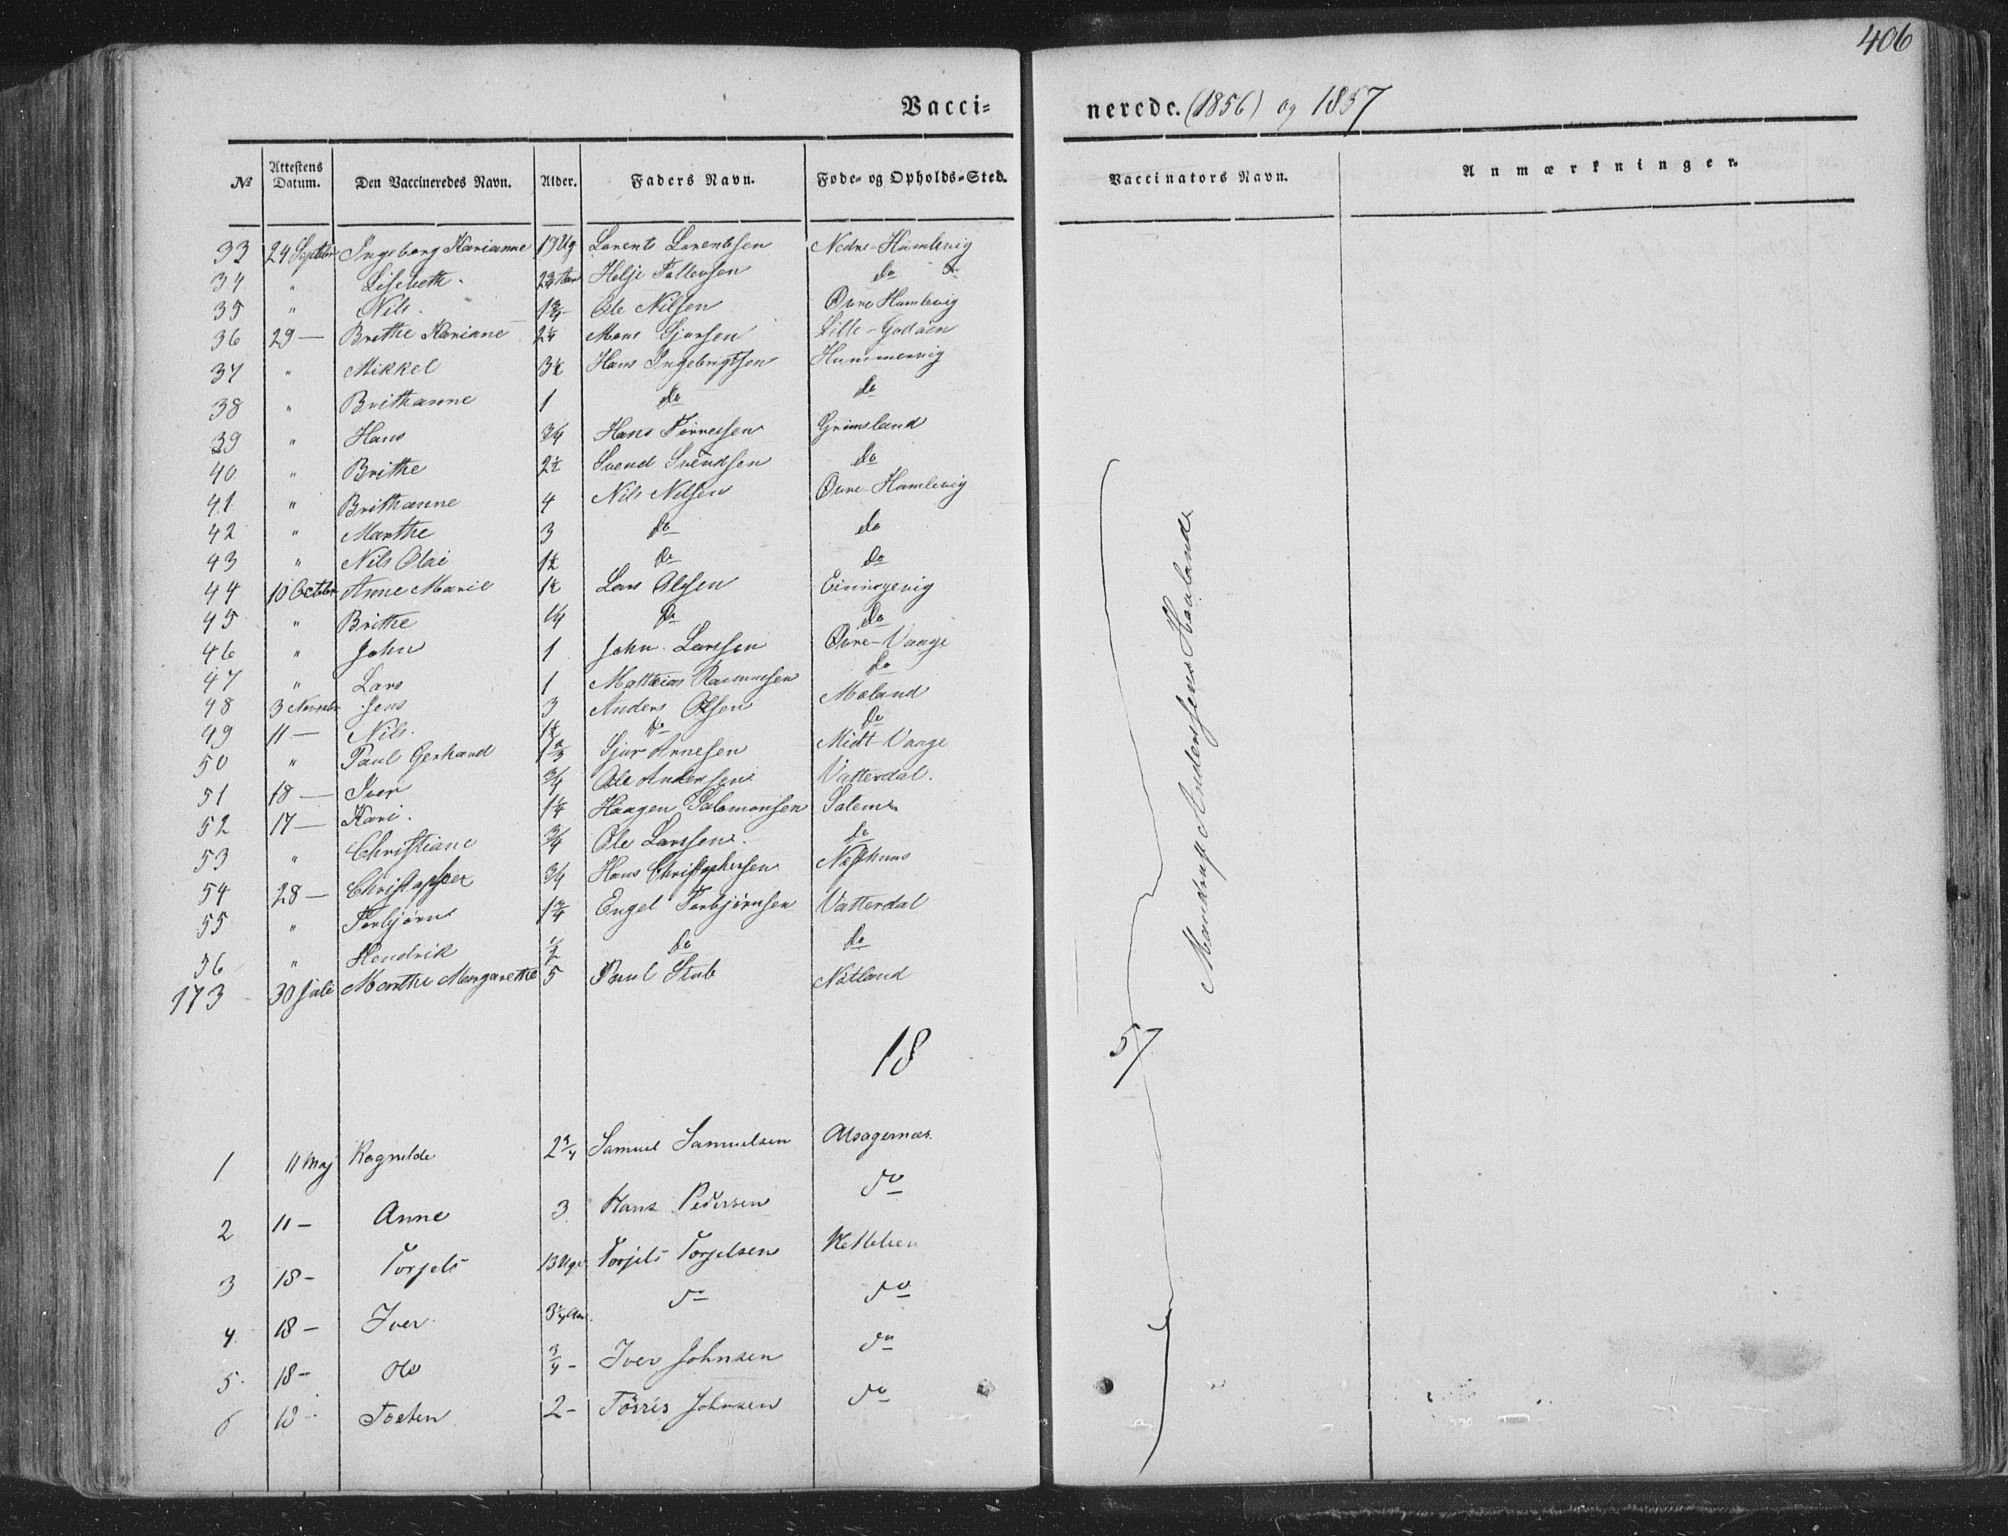 406
Vaccinerede. (1856) og 1857
№ Attestens Datum. Den Vaccineredes Navn. Alder. Faders Navn. Føde- og Opholds-Sted. Vaccinators Navn. Anmærkninger.
33 24 Septbr Ingeborg Karianne 17 Ug Lorents Lorentsen Nedre-Humlevig
34 " Lisebeth. Helje Tollevsen do
35 " Nils. 1 3/4 Ole Nilsen Øvre Humlevig
36 29 — Brithe Kariane 2 1/4 Mons Gjursen Lille-Godøen
37 " Mikkel 3 1/2 Hans Ingebrigtsen Hummervig
38 " Brithanne 1 do do
39 " Hans 3/4 Hans Tørresen Grimsland
40 " Brithe 2 1/2 Svend Svendsen do
41 " Brithanne 4 Nils Nilsen Øvre-Humlevig
42 " Marthe 3 do do
43 " Nils Olai 1 1/2 do do
44 10 Octbr Anne Marie 1 1/2 Lars Olsen
45 " Brithe 1/4 do do
46 " John 1 John Larssen Øvre-Vaage
47 " Lars 1 Mathias Rasmussen do
48 3 Novembr Jens 3 Anders Olsen Moland
49 11 — Nils. 1 1/2 do do
50 " Paul Gerhard 1 2/3 Sjur Arnesen Midt-Vaage
51 18 — Iver 3/4 Ole Andersen Vatterdal.
52 17 — Kari. 1 1/4 Haagen Salomonsen Salem
53 " Christiane 3/4 Ole Larssen. do
54 28 — Christopher 3/4 Hans Christophersen Næsthuus
55 " Torbjørn 1 3/4 Engel Torbjørnsen Vatterdal
56 " Hendrik 1/2 do do
173 30 Juli Marthe Margarethe 5 Paul Stub Natland
Mandrup Andersens Haalande
18 57
1 11 Maj Ragnilde 2 3/4 Samuel Samuelsen
2 11 — Anne 3 Hans Pedersen do
3 18 — Torjels 13 Uge Torjels Torjelsen
4 18 — Iver 3 1/4 Aar. do do
5 18 — Ole 3/4 — Iver Johnsen do
6 18 — Tosten 2 — Tørris Johnsen do